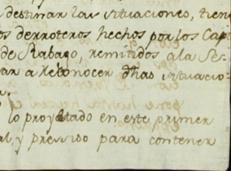 destinar las situaciones, tien
os derroteros hechos por los Cap
de Rabago, remitidos a la Se-
ar a reconocer dhas situacio-
lo proyectado en este primer
al y preciso para contener